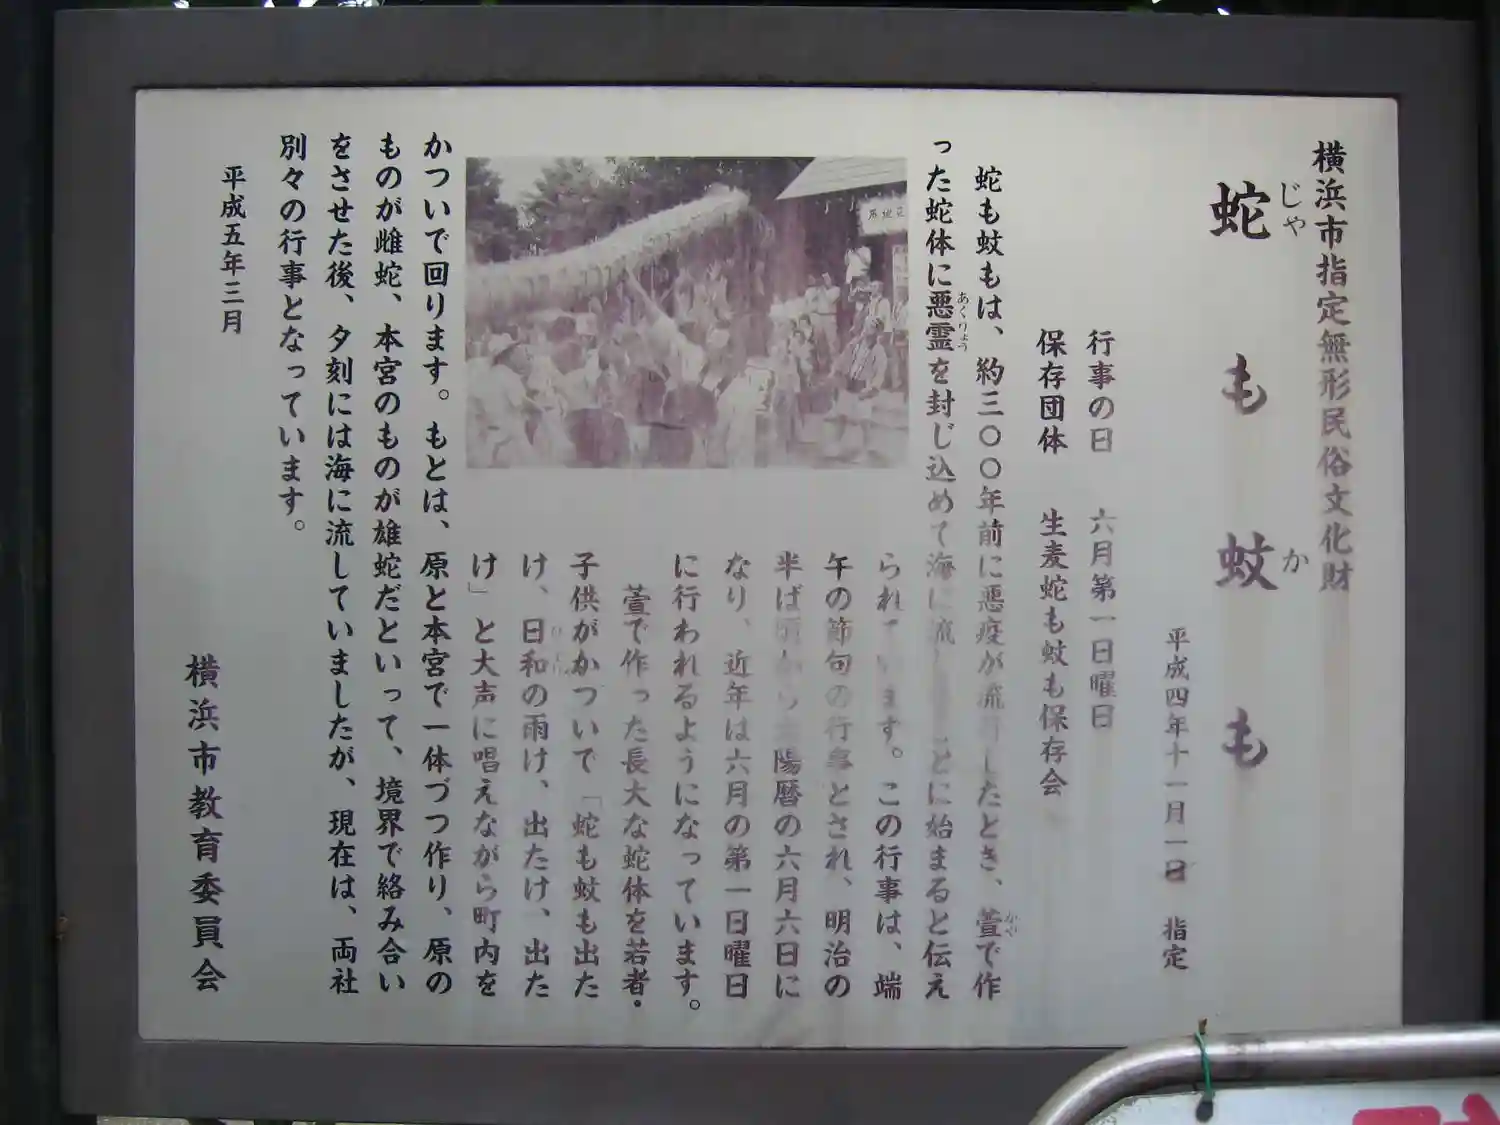 横浜市指定無形民俗文化財
蛇も蚊も
じゃ
か
平成四年十一月一日 指定
行事の日 六月第一日曜日
保存団体 生麦蛇も蚊も保存会
蛇も蚊もは、約三〇〇年前に悪疫が流行したとき、萱で作
った蛇体に悪霊を封じ込めて海に流したことに始まると伝え
あくりょう
られています。この行事は、端
午の節句の行事とされ、明治の
半ば頃から太陽暦の六月六日に
なり、近年は六月の第一日曜日
に行われるようになっています。
萱で作った長大な蛇体を若者・
子供がかついで「蛇も蚊も出た
け、日和の雨け、出たけ、出た
け」と大声に唱えながら町内を
かついで回ります。もとは、原と本宮で一体づつ作り、原の
ものが雌蛇、本宮のものが雄蛇だといって、境界で絡み合い
をさせた後、夕刻には海に流していましたが、現在は、両社
別々の行事となっています。
平成五年三月
横浜市教育委員会